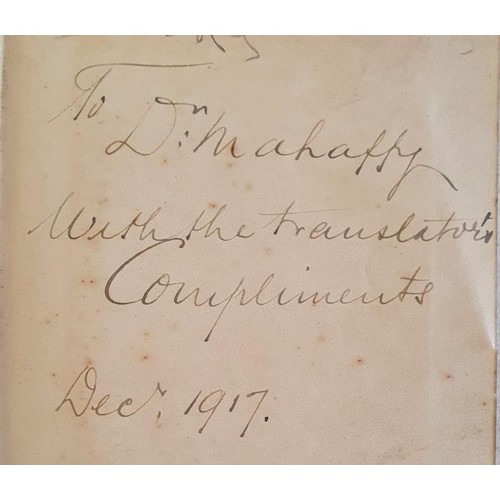 To
Dr. Mahaffy
With the translator's
Compliments
Decr. 1917.